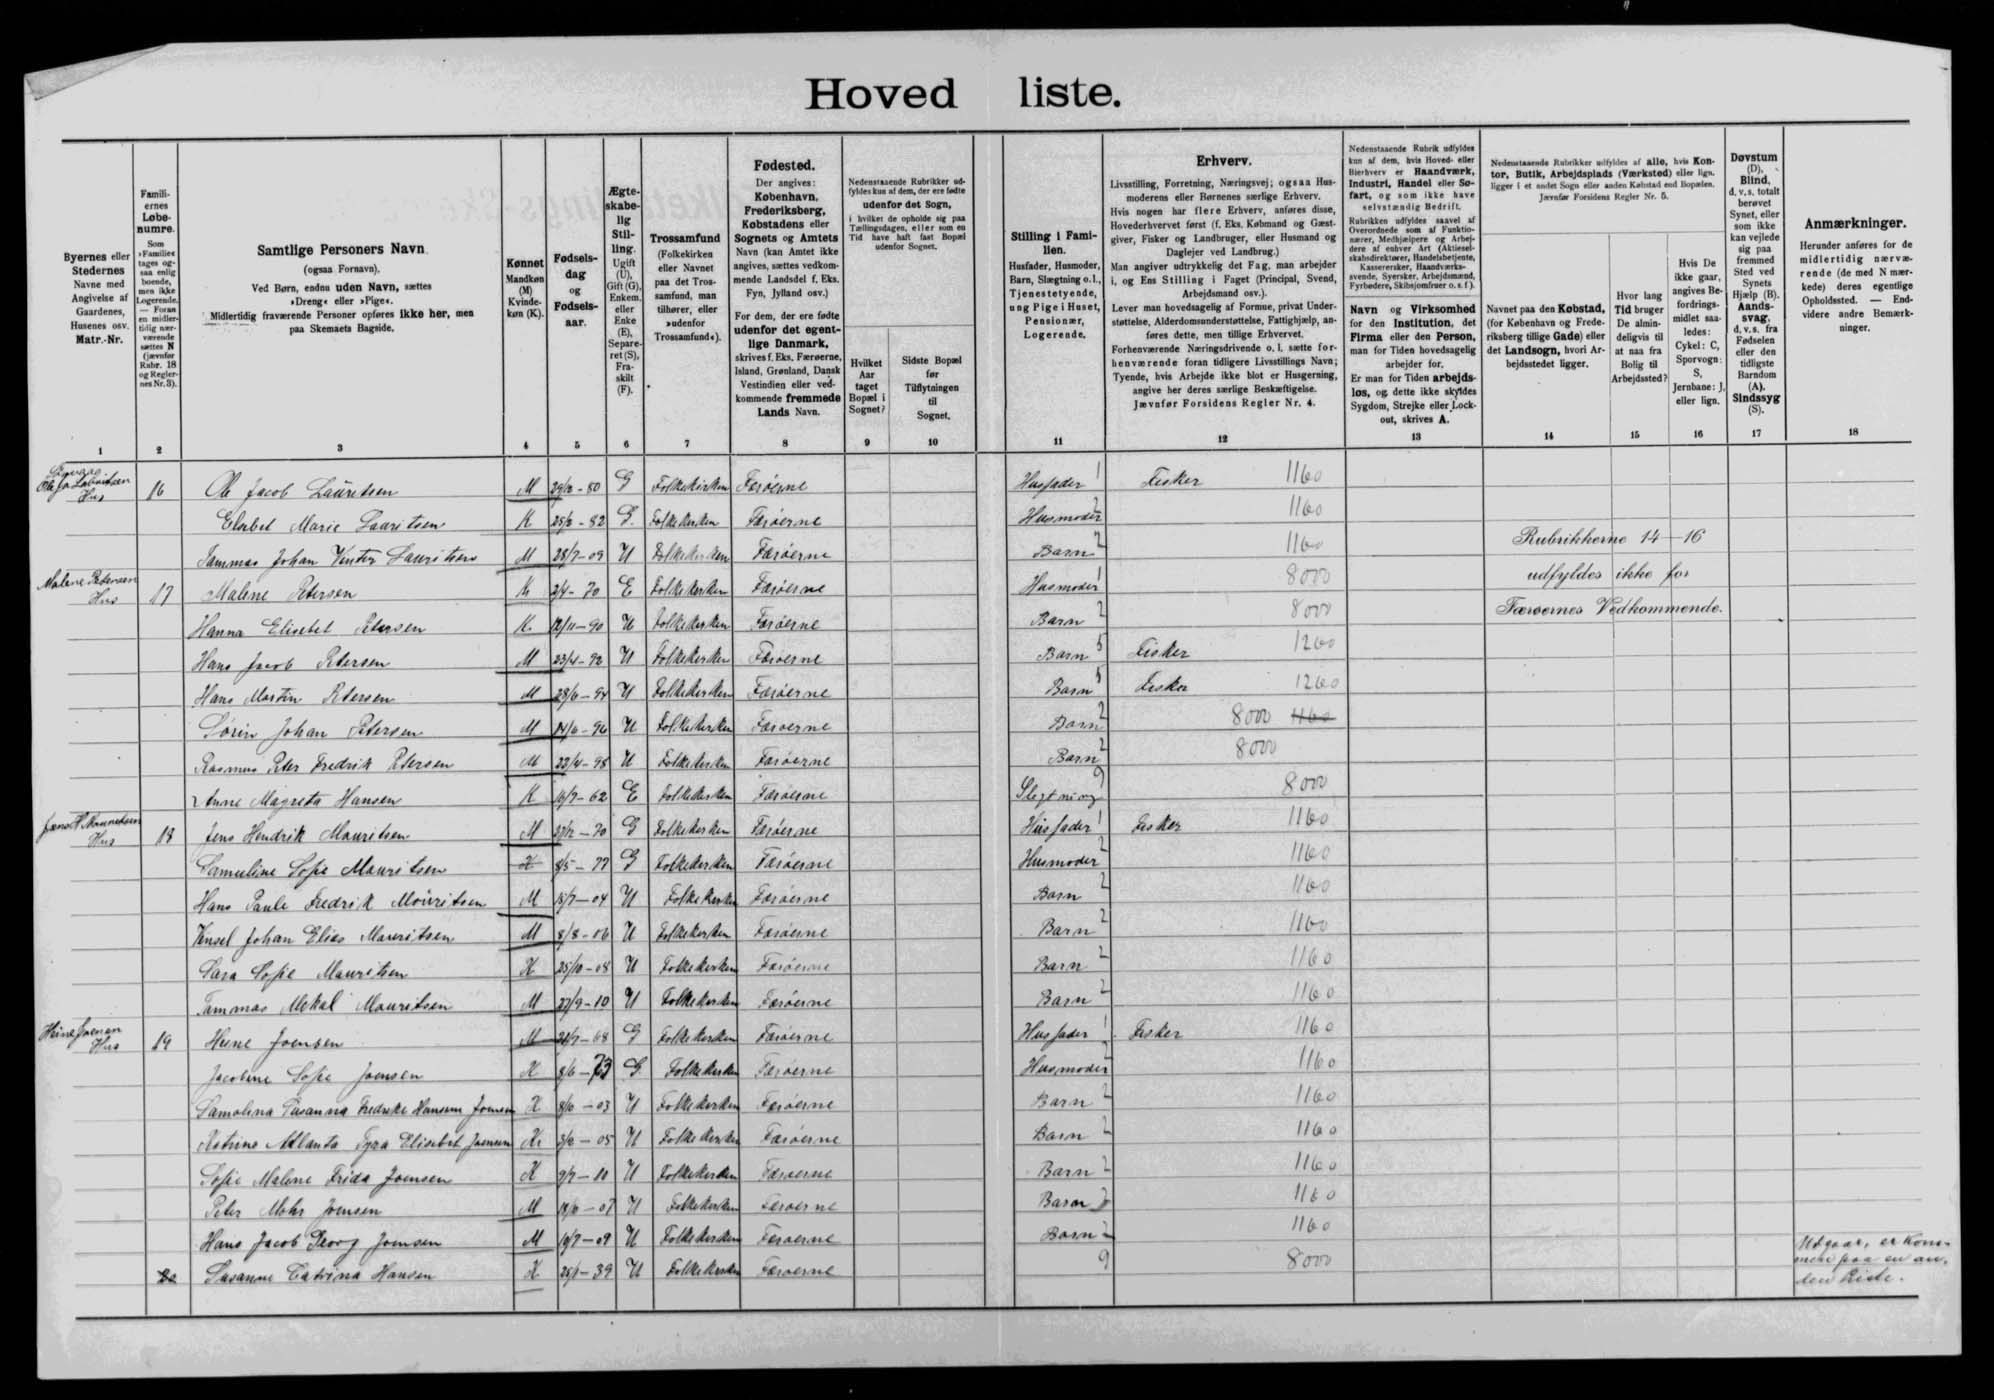 Hoved liste.
Byernes eller Stedernes Navne med Angivelse af Gaardenes, Husenes osv. Matr.-Nr.
Familiernes Løbenumre. Som »Familie« tages ogsaa enlig boende, men ikke Logerende. — Foran en midlertidig nærværende sættes N (jævnfør Rubr. 18 og Reglernes Nr. 3).
Samtlige Personers Navn (ogsaa Fornavn). Ved Børn, endnu uden Navn, sættes »Dreng« eller »Pige«. Midlertidig fraværende Personer opføres ikke her, men paa Skemaets Bagside.
Kønnet Mandkøn (M) Kvindekøn (K).
Fødselsdag og Fødselsaar.
Ægteskabelig Stilling. Ugift (U), Gift (G), Enkem. eller Enke (E), Separeret (S), Fraskilt (F).
Trossamfund (Folkekirken eller Navnet paa det Trossamfund, man tilhører, eller »udenfor Trossamfund«).
Fødested. Der angives: København, Frederiksberg, Købstadens eller Sognets og Amtets Navn (kan Amtet ikke angives, sættes vedkommende Landsdel f. Eks. Fyn, Jylland osv.) For dem, der ere fødte udenfor det egentlige Danmark, skrives f. Eks. Færøerne, Island, Grønland, Dansk Vestindien eller vedkommende fremmede Lands Navn.
Nedenstaaende Rubrikker udfyldes kun af dem, der ere fødte udenfor det Sogn, i hvilket de opholde sig paa Tællingsdagen, eller som en Tid have haft fast Bopæl udenfor Sognet.
Hvilket Aar taget Bopæl i Sognet?
Sidste Bopæl før Tilflytningen til Sognet.
Stilling i Familien. Husfader, Husmoder, Barn, Slægtning o.l., Tjenestetyende, ung Pige i Huset, Pensionær, Logerende.
Erhverv. Livsstilling, Forretning, Næringsvej; ogsaa Husmoderens eller Børnenes særlige Erhverv. Hvis nogen har flere Erhverv, anføres disse, Hovederhvervet først (f. Eks. Købmand og Gæstgiver, Fisker og Landbruger, eller Husmand og Daglejer ved Landbrug.) Man angiver udtrykkelig det Fag, man arbejder i, og Ens Stilling i Faget (Principal, Svend, Arbejdsmand osv.). Lever man hovedsagelig af Formue, privat Understøttelse, Alderdomsunderstøttelse, Fattighjælp, anføres dette, men tillige Erhvervet. Forhenværende Næringsdrivende o. l. sætte forhenværende foran tidligere Livsstillings Navn; Tyende, hvis Arbejde ikke blot er Husgerning, angive her deres særlige Beskæftigelse. Jævnfør Forsidens Regler Nr. 4.
Nedenstaaende Rubrik udfyldes kun af dem, hvis Hoved- eller Bierhverv er Haandværk, Industri, Handel eller Søfart, og som ikke have selvstændig Bedrift.
Rubrikken udfyldes saavel af Overordnede som af Funktionærer, Medhjælpere og Arbejdere af enhver Art (Aktieselskabsdirektører, Handelsbetjente, Kasserersker, Haandværkssvende, Syersker, Arbejdsmænd, Fyrbødere, Skibsjomfruer o. s. f.).
Navn og Virksomhed for den Institution, det Firma eller den Person, man for Tiden hovedsagelig arbejder for. Er man for Tiden arbejdsløs, og dette ikke skyldes Sygdom, Strejke eller Lock-out, skrives A.
Nedenstaaende Rubrikker udfyldes af alle, hvis Kontor, Butik, Arbejdsplads (Værksted) eller lign. ligger i et andet Sogn eller anden Købstad end Bopælen. Jævnfør Forsidens Regler Nr. 5.
Navnet paa den Købstad, (for København og Frederiksberg tillige Gade) eller det Landsogn, hvori Arbejdsstedet ligger.
Hvor lang Tid bruger De almindeligvis til at naa fra Bolig til Arbejdssted?
Hvis De ikke gaar, angives Befordringsmidlet saaledes: Cykel: C, Sporvogn: S, Jernbane: J, eller lign.
Døvstum (D), Blind, d. v. s. totalt berøvet Synet, eller som ikke kan vejlede sig paa fremmed Sted ved Synets Hjælp (B). Aandssvag, d. v. s. fra Fødselen eller den tidligste Barndom (A). Sindssyg (S).
Anmærkninger. Herunder anføres for de midlertidig nærværende (de med N mærkede) deres egentlige Opholdssted. — Endvidere andre Bemærkninger.
1 2 3 4 5 6 7 8 9 10 11 12 13 14 15 16 17 18
Hus 16 Ole Jacob Lauritsen M 29/12 - 80 G Folkekirken Færøerne Husfader 1 Fisker 1160
Elsebet Marie Lauritsen K 25/2 - 82 G. Folkekirken Færøerne Husmoder 2 1160
Tammas Johan Lauritsen M 28/7 - 09 U Folkekirken Færøerne Barn 2 1160 Rubrikkerne 14-16
Malene Petersen Hus 17 Malene Petersen K 2/4 - 70 E Folkekirken Færøerne Husmoder 1 8000 udfyldes ikke for
Hanna Elisebet Petersen K. 12/11 - 90 U Folkekirken Færøerne Barn 2 8000 Færøernes Vedkommende.
Hans Jacob Petersen M 23/4 - 92 U Folkekirken Færøerne Barn 5 Fisker 1260
Hans Martin Petersen M 28/6 - 94 U Folkekirken Færøerne Barn 5 Fisker 1260
Sørin Johan Petersen M 14/6 - 96 U Folkekirken Færøerne Barn 2 8000 1160
Rasmus Peter Fredrik Petersen M 23/4 - 98 U Folkekirken Færøerne Barn 2 8000
Anne Magreta Hansen K 16/7 - 62 E Folkekirken Færøerne Slegtning 9 8000
Jens H Mauritsen Hus 18 Jens Hendrik Mauritsen M 27/12 - 70 G Folkekirken Færøerne Husfader 1 Fisker 1160
Samuline Sofie Mauritsen K 8/5 - 77 G Folkekirken Færøerne Husmoder 2 1160
Hans Paule Fredrik Mauritsen M 18/7 - 04 U Folkekirken Færøerne Barn 2 1160
Johan Elias Mauritsen M 8/8 - 06 U Folkekirken Færøerne Barn 2 1160
Sara Sofie Mauritsen K 25/10 - 08 U Folkekirken Færøerne Barn 2 1160
Tammas Mekal Mauritsen M 27/9 - 10 U Folkekirken Færøerne Barn 2 1160
Heine Joensen Hus 19 Heine Joensen M 21/7 - 68 G Folkekirken Færøerne Husfader 1 Fisker 1160
Jacobine Sofie Joensen K 8/6 - 73 G. Folkekirken Færøerne Husmoder 2 1160
Samolina Susanna Fredrike Hansine Joensen K 8/10 - 03 U Folkekirken Færøerne Barn 2 1160
Katrine Atlanta Tyra Elisebet Joensen K 3/6 - 05 U Folkekirken Færøerne Barn 2 1160
Sofie Malene Frida Joensen K 9/7 - 10 U Folkekirken Færøerne Barn 2 1160
Peter Mohr Joensen M 18/6 - 07 U Folkekirken Færøerne Barn 2 1160
Hans Jacob Joensen M 19/7 - 09 U Folkekirken Færøerne Barn 2 1160
20 Susanne Catrina Hansen K 25/1 - 39 U Folkekirken Færøerne 9 8000 Udgaar, er kommen paa en anden Liste.